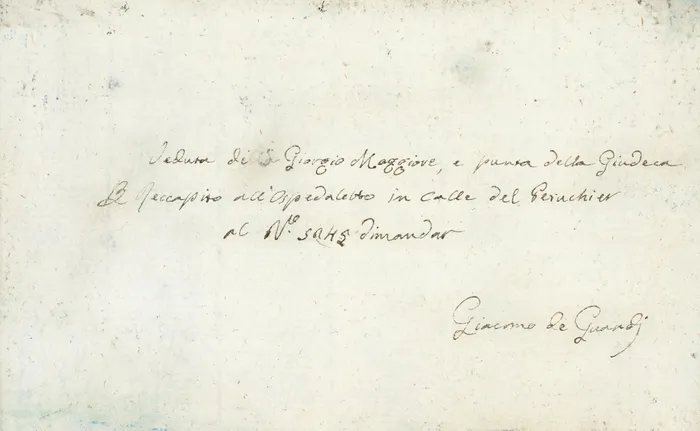 Veduta di S Giorgio Maggiore, e punta della Giudeca
Reccapito all'Ospedaletto in Calle del Peruchier
al N.o 5245 dimandar
Giacomo de Guardi